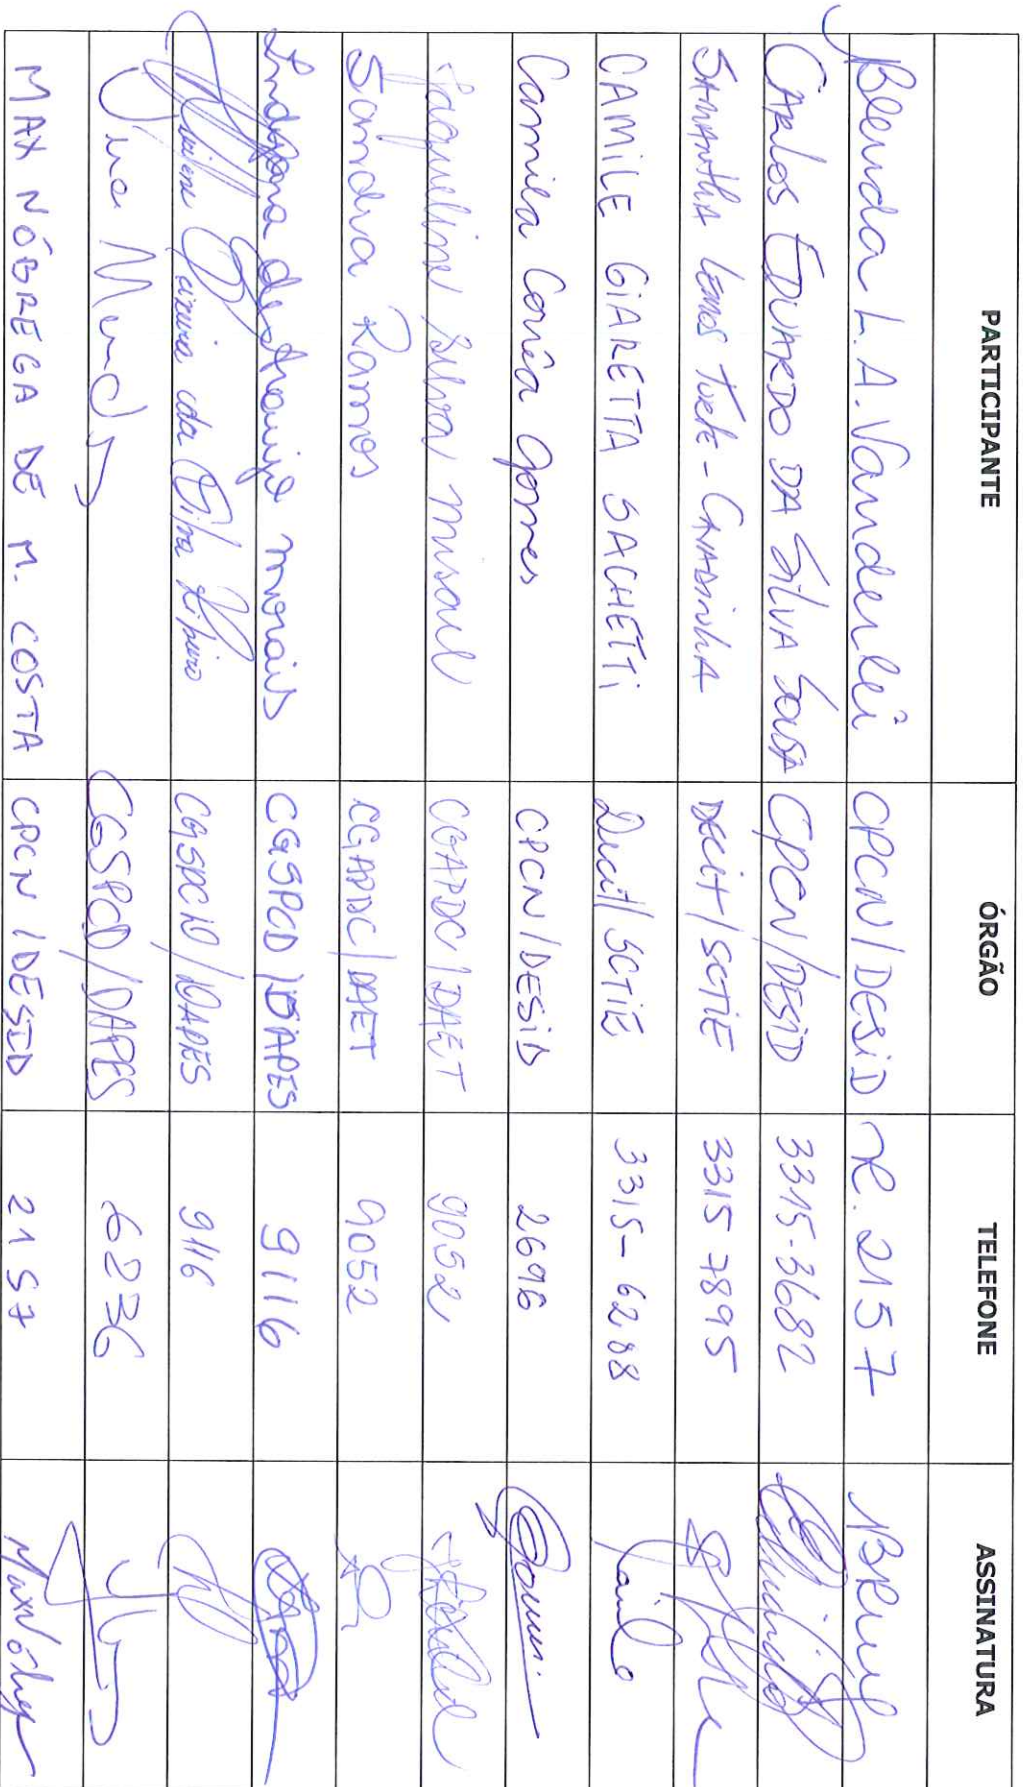 PARTICIPANTE ÓRGÃO TELEFONE ASSINATURA
Brenda L. A. Vanderlei CPCN/DESID R. 2157
CARLOS EDUARDO DA SILVA SOUSA CPCN/DESID 3315-3682
SAMANTHA Lemos Turte - CAVASINHA DECIT/SCTIE 3315 7895
CAMILE GIARETTA SACHETTI Decit/SCTIE 3315-6288
Camila Corrêa Gomes CPCN/DESID 2696
Jaqueline Silva Misael CGAPDC/DAET 9052
Sandra Ramos CGAPDC/DAET 9052
Indyara de Araujo Morais CGSPCD/DAPES 9116
da Silva CGSPCD/DAPES 9116
CGSPCD/DAPES 6236
MAX NÓBREGA DE M. COSTA CPCN/DESID 2157